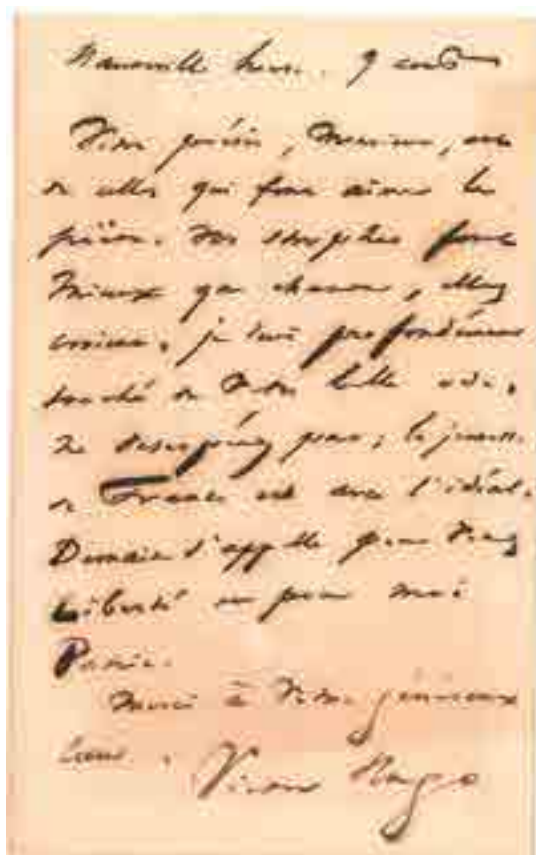 Hauteville house. 9 août
Votre poésie, Monsieur, est
de celles qui font aimer le
poète. Vos strophes font
mieux que charmer, elles
je suis profondément
touché de votre belle ode.
Ne désespérez pas; la jeune
France est avec l'idéal.
Demain s'appelle pour vous
Liberté et pour moi
Patrie.
Merci à votre généreux
cœur.
Victor Hugo